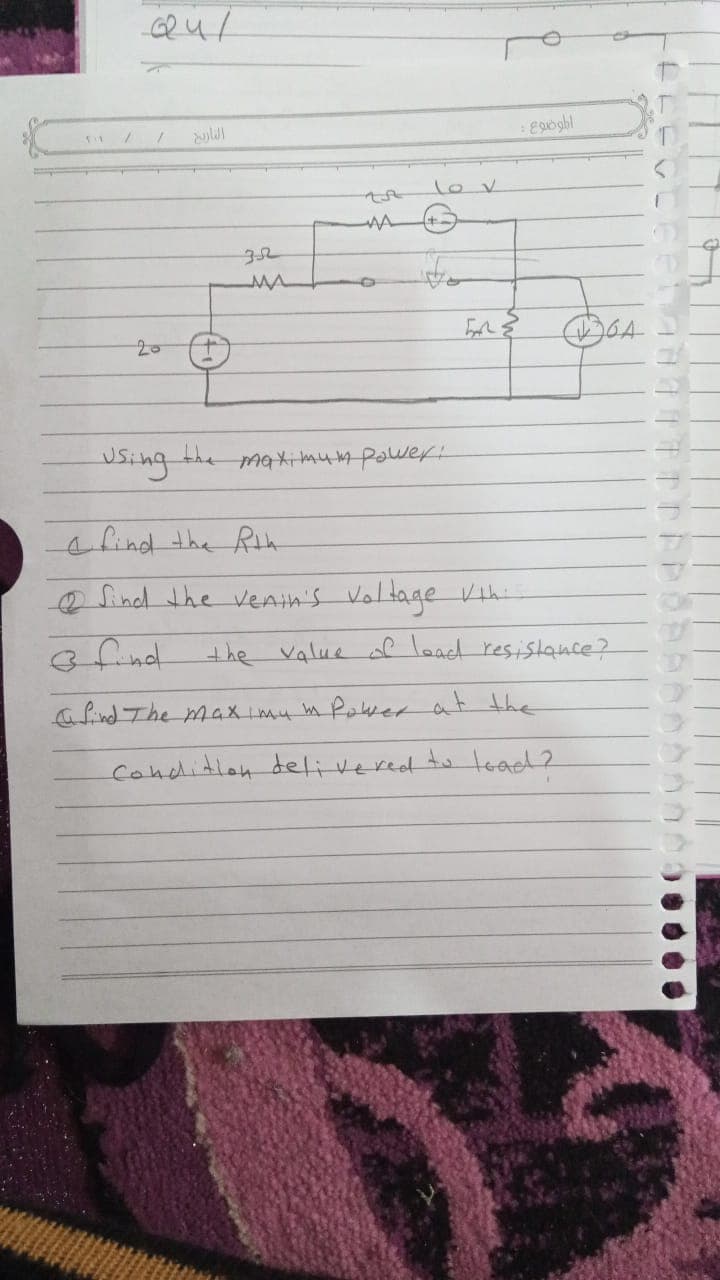 Q4/
الموضوع :
التاريخ / / ٢٠١
2Ω 10 v
3Ω
20
5Ω 6A
Using the maximum power:
1 find the Rth
2 find the venin's Voltage Vth:
3 find the value of load resistance?
4 find The maximum Power at the
condition delivered to load?